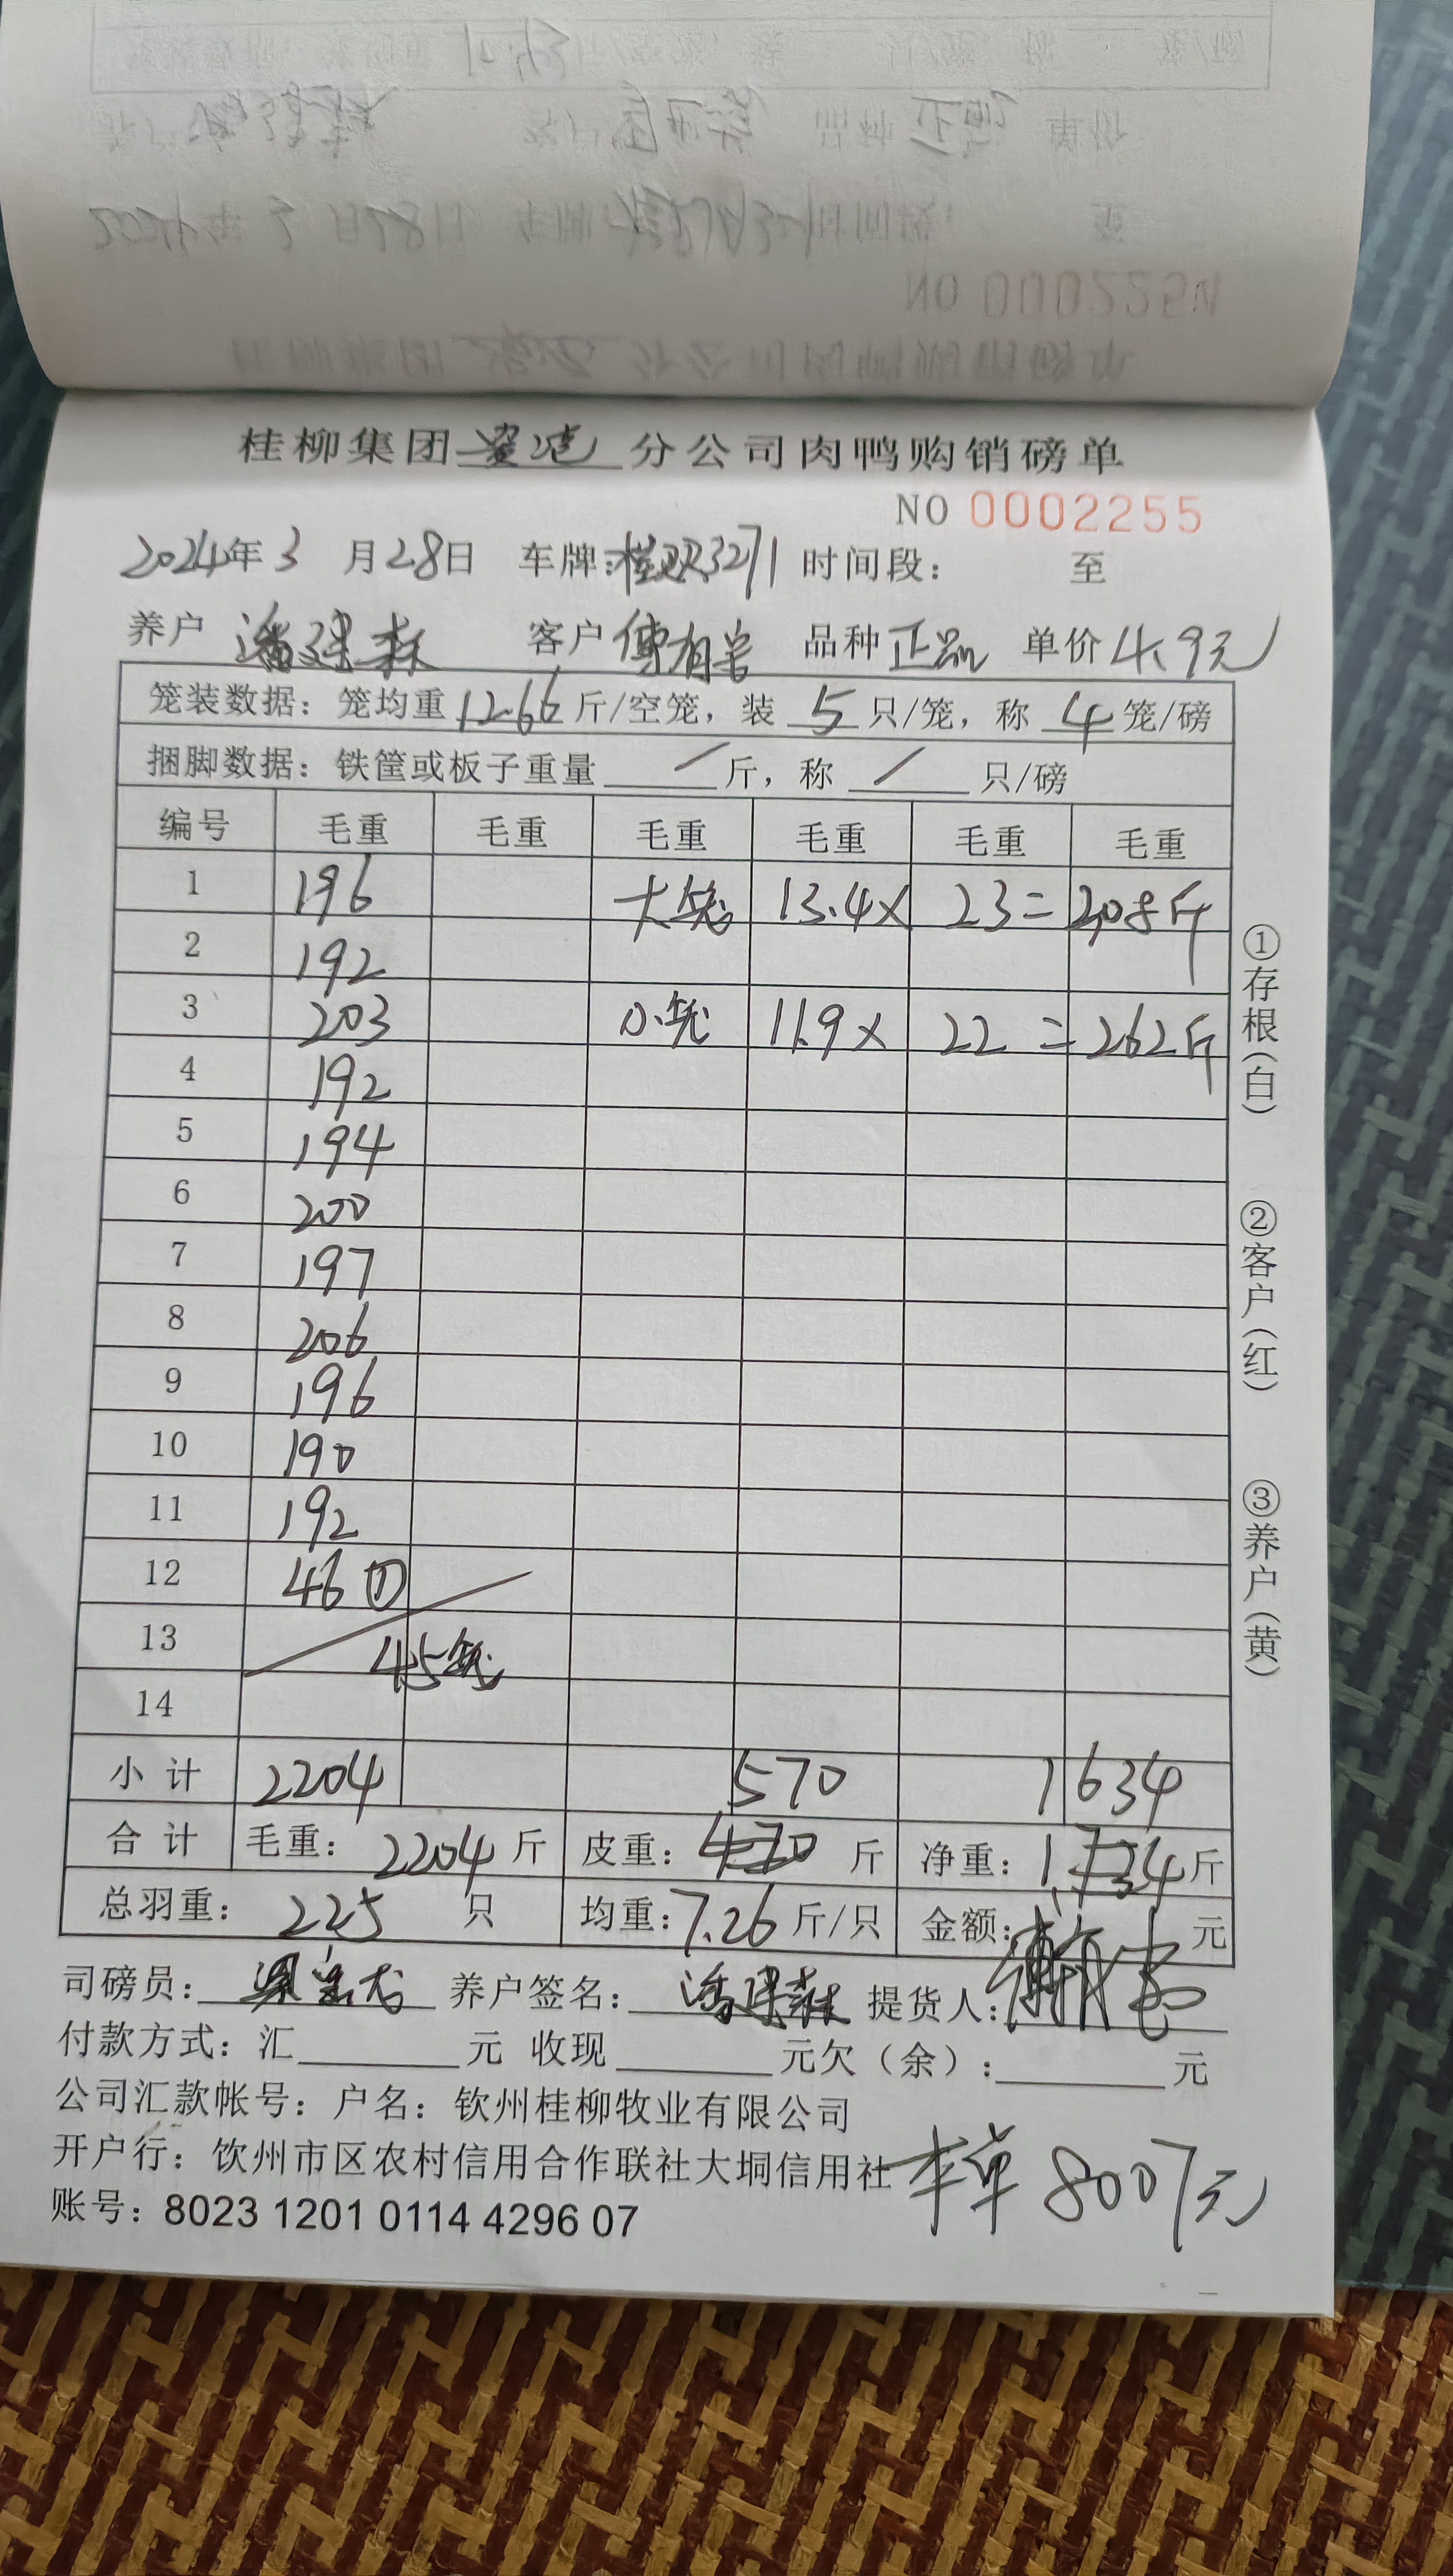 桂柳集团灵达分公司肉鸭购销磅单
NO 0002255
2024年3月28日 车牌: 3271 时间段: 至
养户 潘建森 客户 傅有  品种 正品 单价 4.9元
笼装数据: 笼均重 12.66 斤/空笼, 装 5 只/笼, 称 4 笼/磅
捆脚数据: 铁筐或板子重量 / 斤, 称 / 只/磅
编号 毛重 毛重 毛重 毛重 毛重 毛重
1 196 大笼 13.4× 23= 308斤
2 192
3 203 小笼 11.9× 22= 262斤
4 192
5 194
6 200
7 197
8 206
9 196
10 190
11 192
12 46 ①
13 45笼
14
小计 2204 570 1634
合计 毛重: 2204 斤 皮重: 470 斤 净重: 1734 斤
总羽重: 225 只 均重: 7.26 斤/只 金额: 元
司磅员: 养户签名: 潘建森 提货人:
付款方式: 汇 元 收现 元欠(余): 元
公司汇款帐号: 户名: 钦州桂柳牧业有限公司
开户行: 饮州市区农村信用合作联社大垌信用社
账号: 8023 1201 0114 4296 07
本单 8007元
①存根(白)
②客户(红)
③养户(黄)
NO 0002254